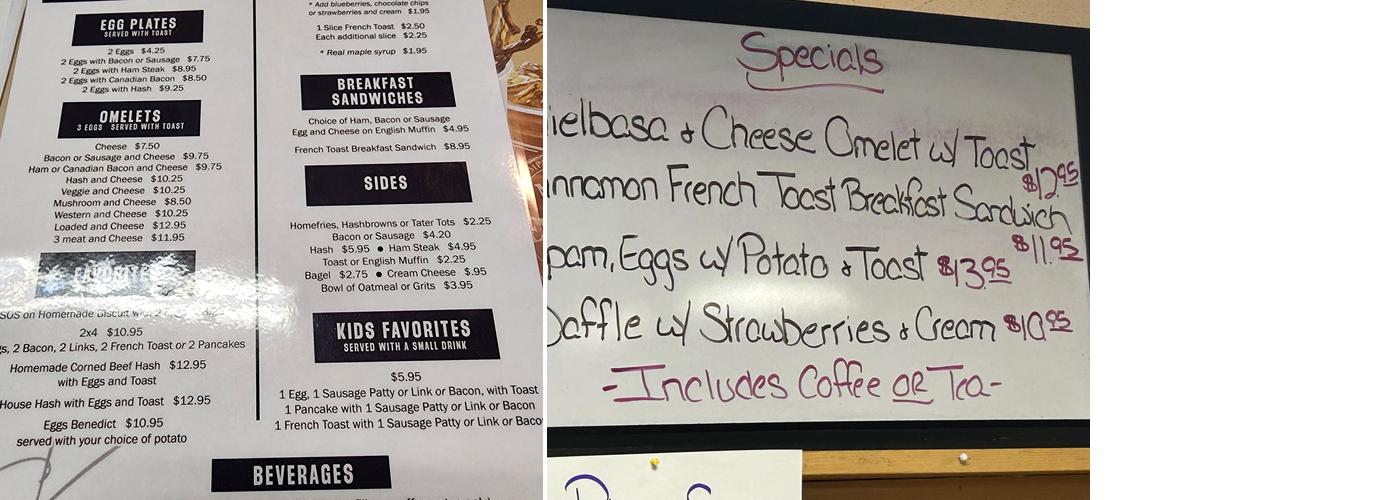 EGG PLATES
SERVED WITH TOAST
2 Eggs $4.25
2 Eggs with Bacon or Sausage $7.75
2 Eggs with Ham Steak $8.95
2 Eggs with Canadian Bacon $8.50
2 Eggs with Hash $9.25
OMELETS
3 EGGS SERVED WITH TOAST
Cheese $7.50
Bacon or Sausage and Cheese $9.75
Ham or Canadian Bacon and Cheese $9.75
Hash and Cheese $10.25
Veggie and Cheese $10.25
Mushroom and Cheese $8.50
Western and Cheese $10.25
Loaded and Cheese $12.95
3 meat and Cheese $11.95
FAVORITES
SOS on Homemade Biscuit
2x4 $10.95
2 Bacon, 2 Links, 2 French Toast or 2 Pancakes
Homemade Corned Beef Hash $12.95
with Eggs and Toast
House Hash with Eggs and Toast $12.95
Eggs Benedict $10.95
served with your choice of potato
* Add blueberries, chocolate chips
or strawberries and cream $1.95
1 Slice French Toast $2.50
Each additional slice $2.25
* Real maple syrup $1.95
BREAKFAST
SANDWICHES
Choice of Ham, Bacon or Sausage
Egg and Cheese on English Muffin $4.95
French Toast Breakfast Sandwich $8.95
SIDES
Homefries, Hashbrowns or Tater Tots $2.25
Bacon or Sausage $4.20
Hash $5.95 ● Ham Steak $4.95
Toast or English Muffin $2.25
Bagel $2.75 ● Cream Cheese $.95
Bowl of Oatmeal or Grits $3.95
KIDS FAVORITES
SERVED WITH A SMALL DRINK
$5.95
1 Egg, 1 Sausage Patty or Link or Bacon, with Toast
1 Pancake with 1 Sausage Patty or Link or Bacon
1 French Toast with 1 Sausage Patty or Link or Baco
BEVERAGES
Specials
ielbasa & Cheese Omelet w/ Toast
$12.95
nnamon French Toast Breakfast Sandwich
$11.95
pam, Eggs w/ Potato & Toast $13.95
affle w/ Strawberries & Cream $10.95
-Includes Coffee OR Tea-